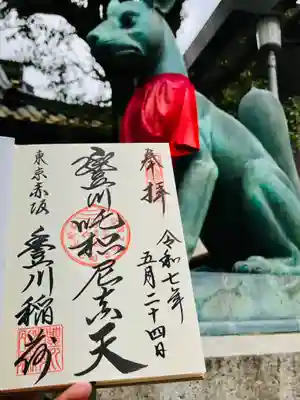 奉拝
令和七年
五月二十四日
豊川吒枳尼真天
東京赤坂
豊川稲荷